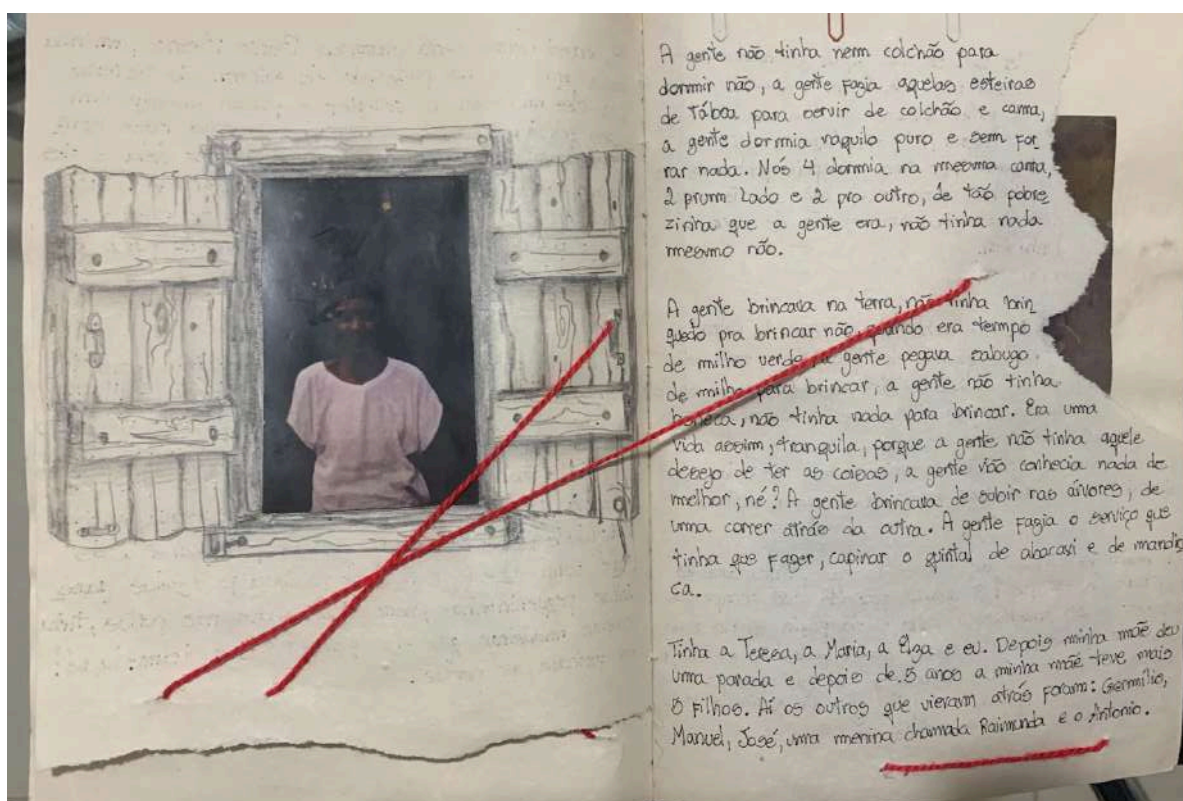 A gente não tinha nem colchão para
dormir não, a gente fazia aquelas esteiras
de táboa para servir de colchão e cama,
a gente dormia naquilo puro e sem for
rar nada. Nós 4 dormia na mesma cama,
2 prum lado e 2 pro outro, de tão pobre
zinha que a gente era, não tinha nada
mesmo não.
A gente brincava na terra, não tinha brin
quedo pra brincar não, quando era tempo
de milho verde, a gente pegava sabugo
de milho para brincar, a gente não tinha
boneca, não tinha nada para brincar. Era uma
vida assim, tranquila, porque a gente não tinha aquele
desejo de ter as coisas, a gente não conhecia nada de
melhor, né? A gente brincava de subir nas árvores, de
uma correr atrás da outra. A gente fazia o serviço que
tinha que fazer, capinar o quintal de abacaxi e de mandio
ca.
Tinha a Teresa, a Maria, a Elza e eu. Depois minha mãe deu
uma parada e depois de 5 anos a minha mãe teve mais
5 filhos. Aí os outros que vieram atrás foram: Germílio,
Manuel, José, uma menina chamada Raimunda e o Antonio.